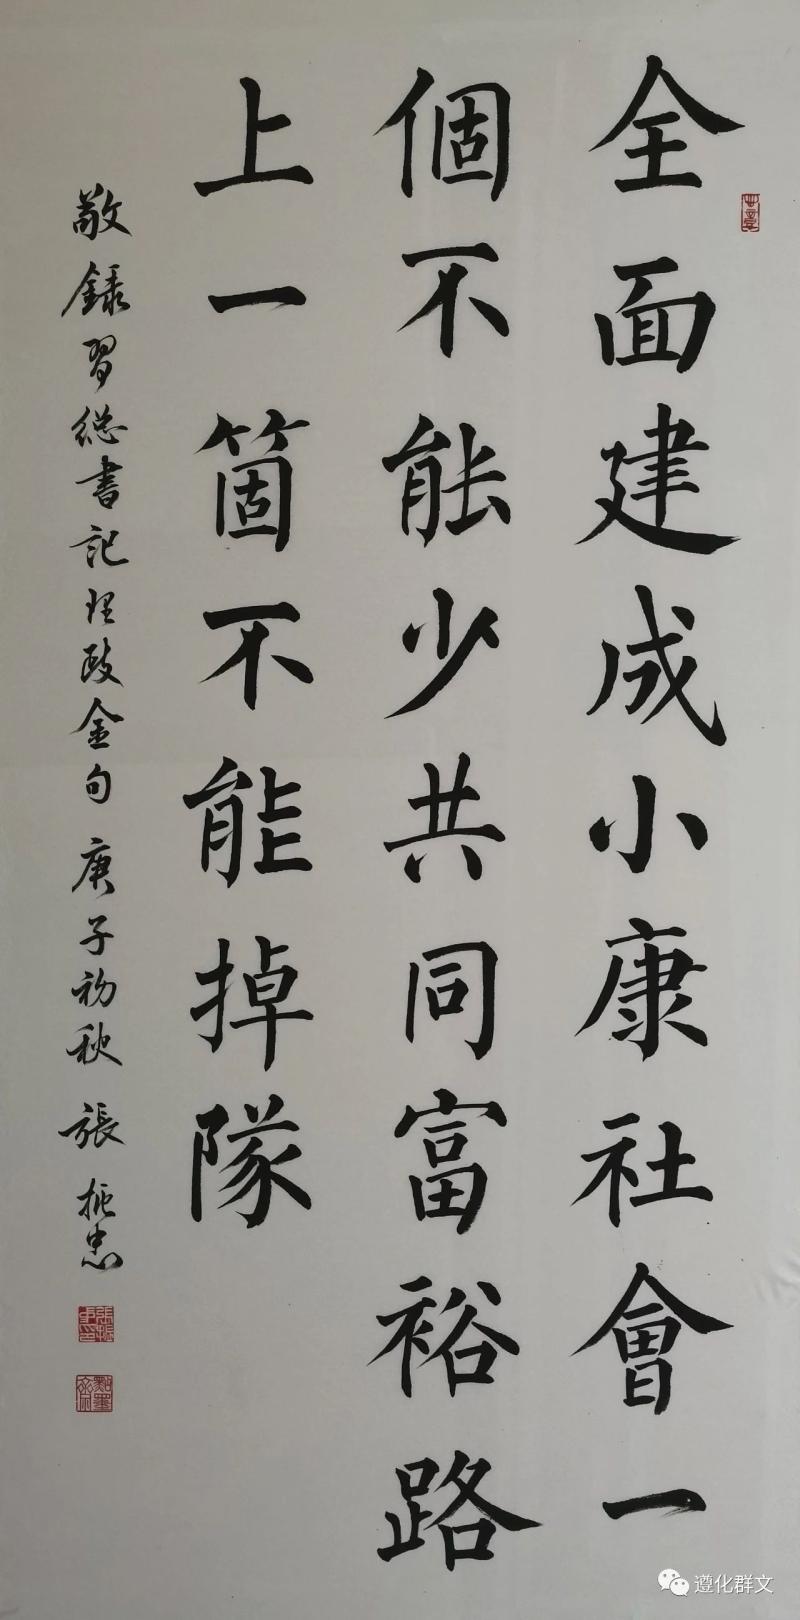 全面建成小康社會一
個不能少共同富裕路
上一箇不能掉隊
敬録習総書記理政金句 庚子初秋 張振忠
遵化群文